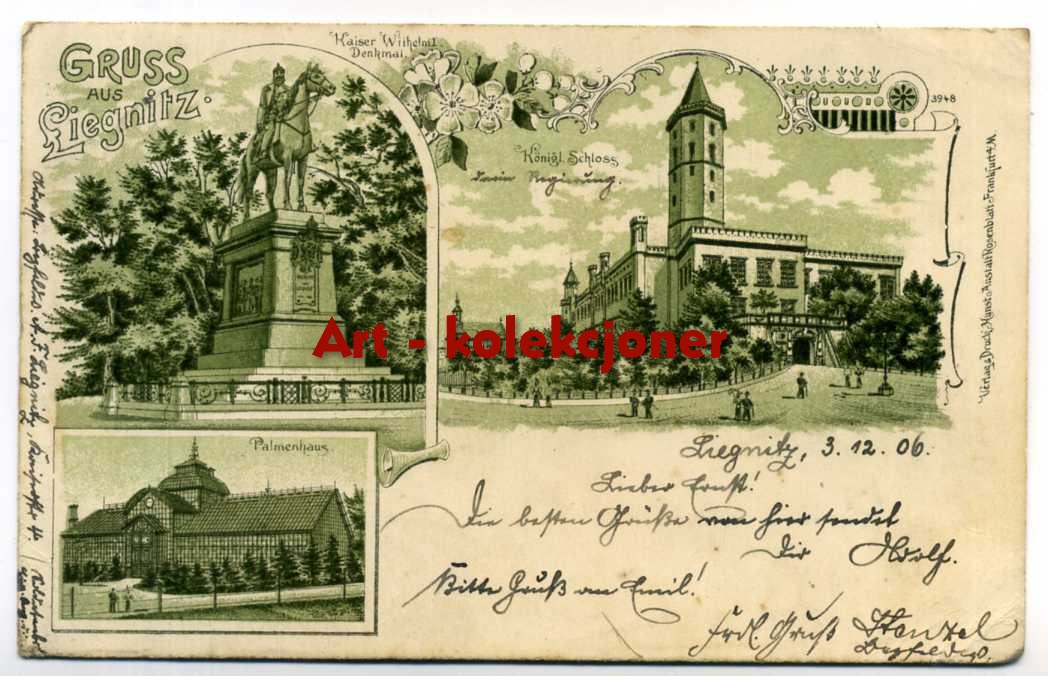 GRUSS
AUS
Liegnitz.
Kaiser Wilhelm I.
Denkmal.
3948
Königl. Schloss
darin Regierung.
Verlag & Druck, Kunst-Anstalt Rosenblatt, Frankfurt a/M.
Art - kolekcjoner
Palmenhaus.
Liegnitz, 3. 12. 06.
Lieber Ernst!
Die besten Grüße von hier sendet
Dir Adolf.
Bitte Gruß an Emil!
Frdl. Gruß Stenzel
Adresse: Liegnitz, 44.